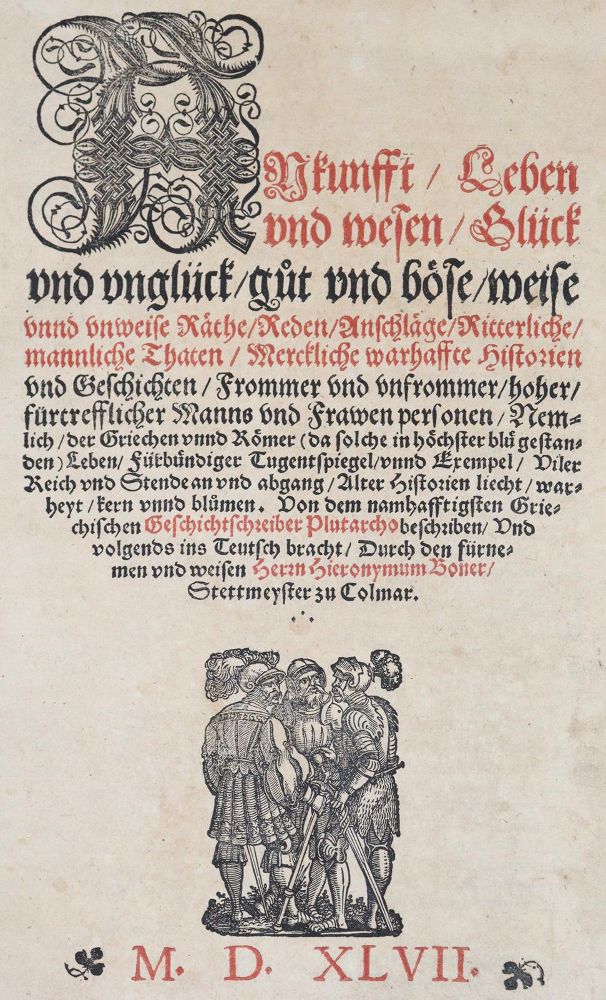 ANkunfft / Leben
vnd wesen / Glück
vnd vnglück / gůt vnd böse / weise
vnnd vnweise Räthe / Reden / Anschläge / Ritterliche /
mannliche Thaten / Merckliche warhaffte Historien
vnd Geschichten / Frommer vnd vnfrommer / hoher /
fürtrefflicher Manns vnd Frawen personen / Nem-
lich / der Griechen vnnd Römer (da solche in höchster blů gestan-
den) Leben / Fürbündiger Tugentspiegel / vnnd Exempel / Viler
Reich vnd Stende an vnd abgang / Alter Historien liecht / war-
heyt / kern vnnd blůmen. Von dem namhafftigsten Grie-
chischen Geschichtschreiber Plutarcho beschriben / Vnd
volgends ins Teutsch bracht / Durch den fürne-
men vnd weisen Herrn Hieronymum Boner /
Stettmeyster zu Colmar.
M. D. XLVII.